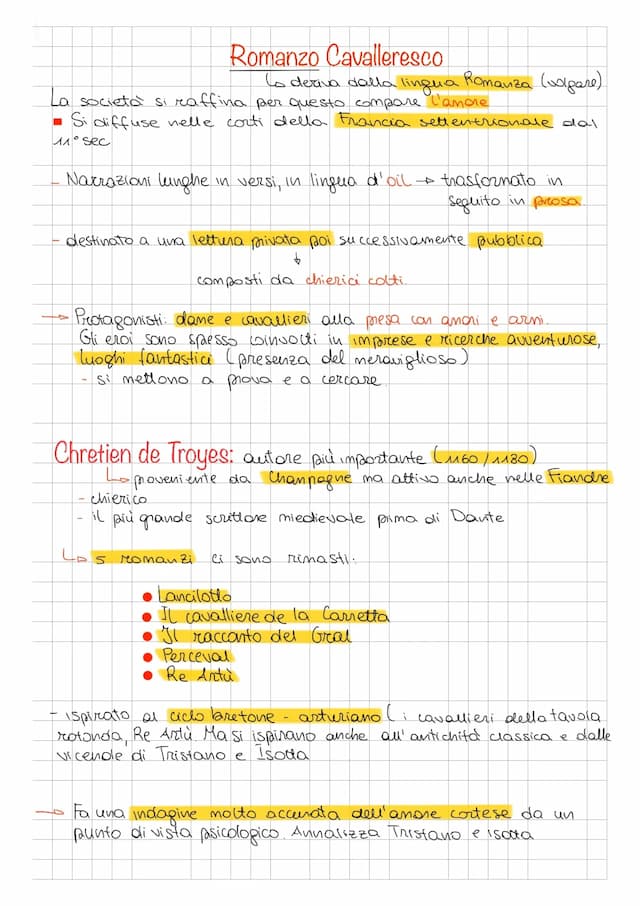 Romanzo Cavalleresco
↳ deriva dalla lingua Romanza (volgare)
La società si raffina per questo compare l'amore
▪ Si diffuse nelle corti della Francia settentrionale dal
11° sec
- Narrazioni lunghe in versi, in lingua d'oil → trasformato in
seguito in prosa
- destinato a una lettura privata poi successivamente pubblica
↓
composti da chierici colti.
→ Protagonisti: dame e cavallieri alla presa con amori e armi.
Gli eroi sono spesso coinvolti in imprese e ricerche avventurose,
luoghi fantastici (presenza del meraviglioso)
- si mettono a prova e a cercare
Chretien de Troyes: autore più importante (1160/1180)
↳ proveniente da Champagne ma attivo anche nelle Fiandre
- chierico
- il più grande scrittore medievale prima di Dante
↳ 5 romanzi ci sono rimasti:
• Lancilotto
• Il cavalliere de la Carretta
• Il racconto del Gral
• Perceval
• Re Artù
- ispirato al ciclo bretone - arturiano (i cavallieri della tavola
rotonda, Re Artù. Ma si ispirano anche all'antichità classica e dalle
vicende di Tristano e Isotta
→ Fa una indagine molto accurata dell'amore cortese da un
punto di vista psicologico. Annalizza Tristano e isotta